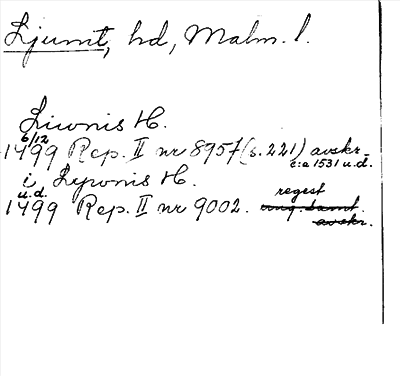 Ljunit, hd, Malm. l.
Liwnis H.
6/12
1499 Rep. II nr 8957 (s. 221) avskr.
c:a 1531 u.d.
i Lywnis H.
u.d.
1499 Rep. II nr 9002. regest
avskr.